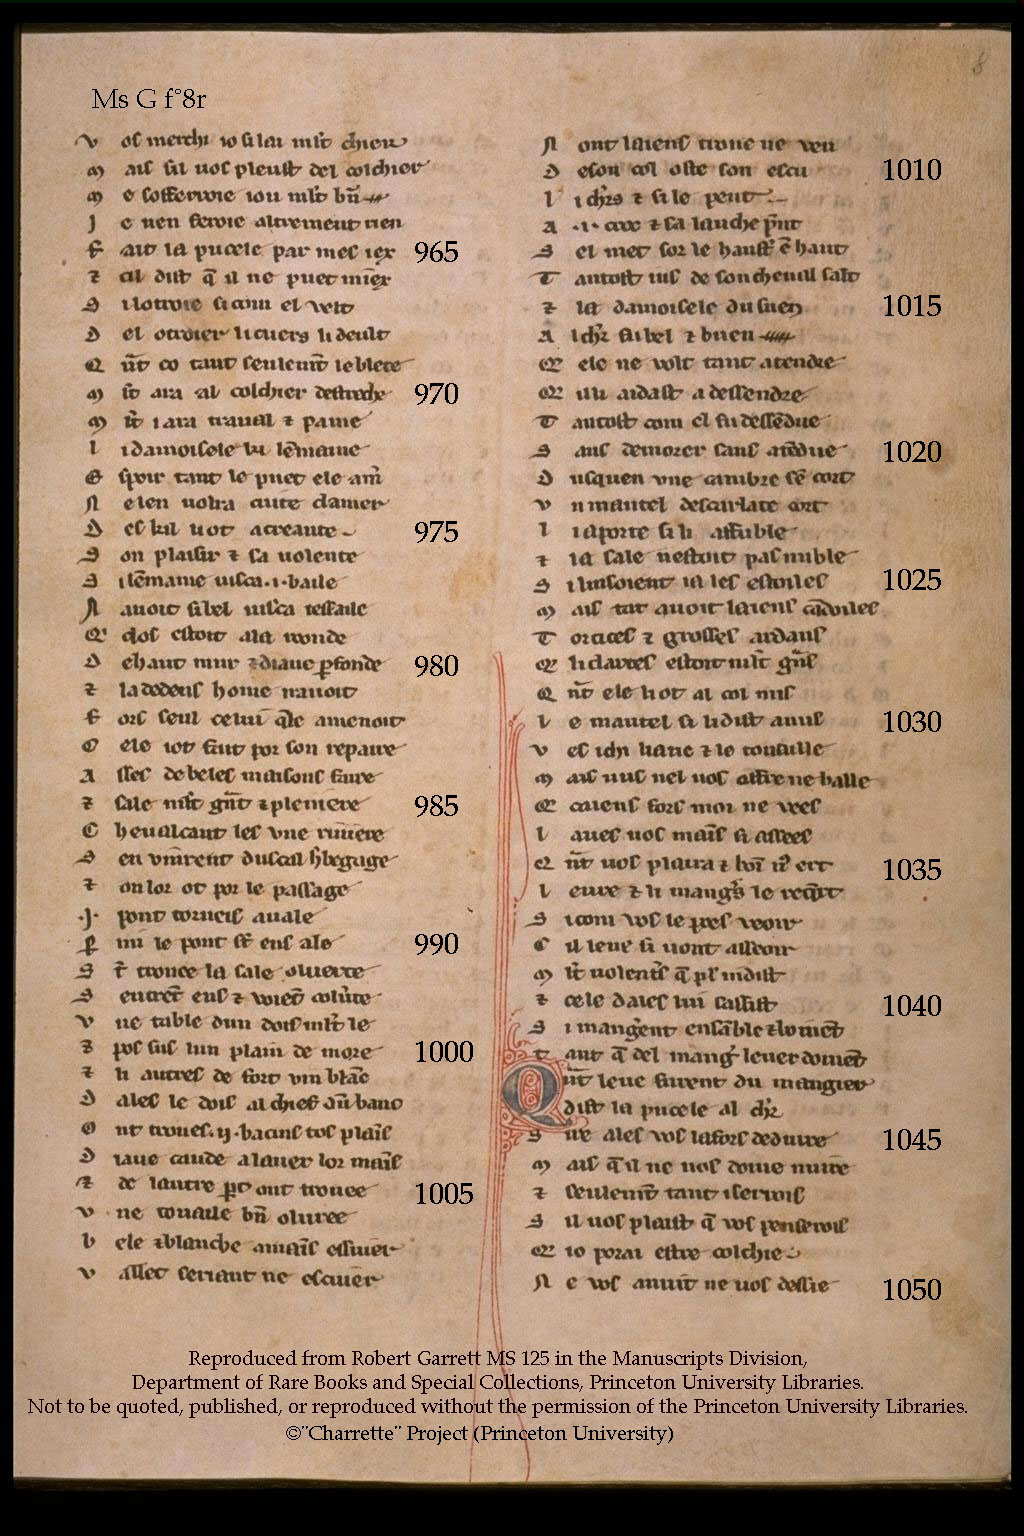 Ms G f°8r
V os merchi io si lai mlt chier
M ais sil uos pleust del colchier
M e sofferroie iou mlt bn
J e nen feroie altrement rien
F ait la pucele par mes iex 965
⁊ cil dist q̄ il ne puet miex
S i lotroie si com el velt
D el otroier li cuers li deult
Q nt̄ co tant seulemt̄ le blece
M lt̄ ara al colchier destreche 970
M lt̄ i ara trauail ⁊ paine
l i damoisele ki lēmaine
E spoir tant le puet ele am̄
N e len uolra cuite clamer
D es kil li ot acreante 975
S on plaisir ⁊ sa uolente
S i lēmaine iusca .i. baile
N auoit si bel iusca tessaile
Q clos estoit a la reonde
D e haut mur ⁊ diaue ꝑfonde 980
⁊ la dedens home nauoit
F ors seul celui q̄le amenoit
C ele iot fait por son repaire
A sses de beles maisons faire
⁊ sale mlt̄ gn̄t ⁊ pleniere 985
C heualcant les vne riuiere
S en vinrent
⁊ on lor ot por le passage
.J. pont torneis auale
P mi le pont st̄ ens ale 990
S t̄ trouee la sale ouuerte
S entret ens ⁊ voiet
V ne table dun dois mlt̄ le
⁊ pos sus lun plain de more 1000
⁊ li autres de fort vin blāc
D ales le dois al chief dū banc
O nt troues .ij. bacins tos plaīs
D iaue caude a lauer lor maīs
⁊ de lautre ꝑt ont trouee 1005
V ne touaile bn̄ oluree
b ele ⁊ blanche a maīs essuier
V asllec seriant ne escuier
N ont laiens troue ne veu
D e son col oste son escu 1010
l i chrs ⁊ si le pent
A .i. croc ⁊ sa lanche p̄nt
S el met sor le
T antost ius de son cheual salt
⁊ la damoisele du suen 1015
A l chr̄ fu bel ⁊ buen
Q ele ne volt tant atendre
Q il li aidast a dessendre
T antost com el fu dessēdue
S ans demorer sans atēdue 1020
D usquen vne cambre sē cort
V n mantel descarlate cort
l i aporte si li affuble
⁊ la sale nestoit pas nuble
S i luisoient ia les estoiles 1025
M ais tāt auoit laiens cādoiles
T orces ⁊ grosses ardans
Q li clartes estoit mlt̄ gn̄s
Q nt̄ ele li ot al col mis
l e mantel si li dist amis 1030
V es ichi liaue ⁊ le touaille
M ais nus nel uos offre ne balle
Q caiens fors moi ne vees
l aues uos maīs si asees
Q nt̄ uos plaira ⁊ 1035
l eure ⁊ li mangs̄
S i com vos le poes veoir
C il leue si uont asseoir
M lt̄ uolentis̄
⁊ cele dales lui sassist 1040
S i mangent ensāble ⁊ boiuēt
T ant q̄ del manḡ leuer doiuēt
Q nt̄ leue furent du mangier
dist la pucele al chr̄
S ire ales vos la fors deduire 1045
M ais q̄ il ne uos doiue nuire
⁊ seulemt̄ tant i serrois
S il uos plaist q̄ vos penserois
Q io porai estre colchie
N e vos anuit ne uos dessie 1050
Reproduced from Robert Garrett MS 125 in the Manuscripts Division,
Department of Rare Books and Special Collections, Princeton University Libraries.
Not to be quoted, published, or reproduced without the permission of the Princeton University Libraries.
©"Charrette" Project (Princeton University)